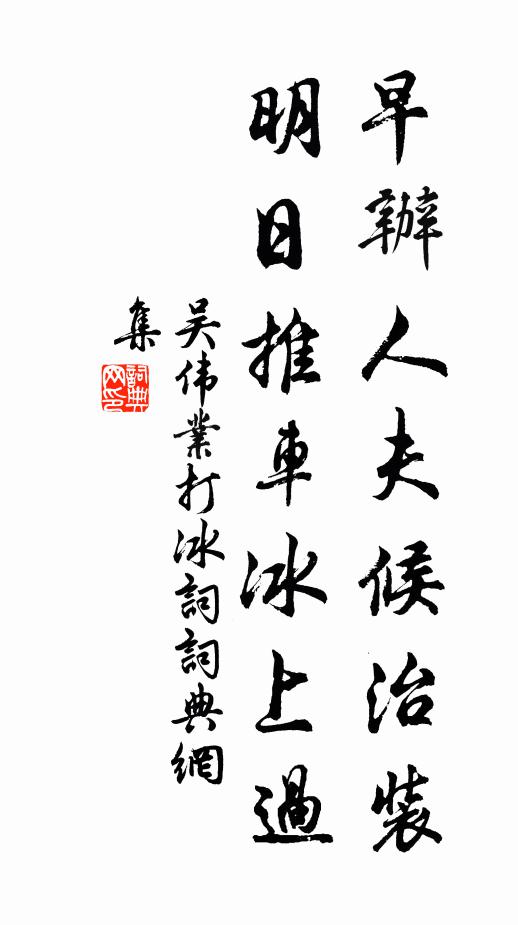 早辦人夫候治裝
明日推車冰上過
吴伟業打冰詞詞典網
集
詞典网印